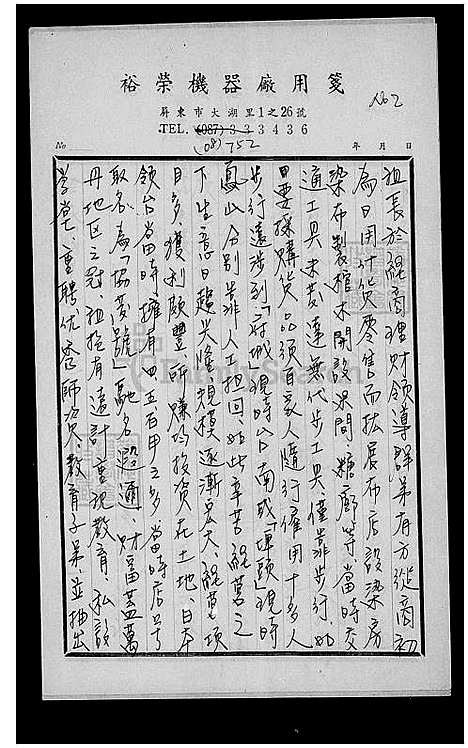 裕榮機器廠用箋
No 2
屏東市大湖里1之26號
TEL. (087) 333436
(08) 752
No
年 月 日
祖長於經商理財領導群弟有方從商初
為日用什貨零售而拡展布店設染房
染布製棺木開設米間、糖廍等、當時交
通工具未發達無代步工具僅靠步行、如
日要採購貨品須自家人隨行僱用十多人
步行遠涉到「府城」現時台南或「埤頭」現時
鳳山分別靠人工担回、如此辛苦經營之
下生意日趨興隆、規模逐漸宏大、經營項
目多、獲利頗豐、所賺均投資在土地、日本
領台當時擁有四五百甲之多當時店号
取名為「協發號」馳名遐邇、財富蓋萬
丹地区之冠、祖抱有遠計重視教育、私設
學堂、重聘优秀師資、教育子弟、並抽出